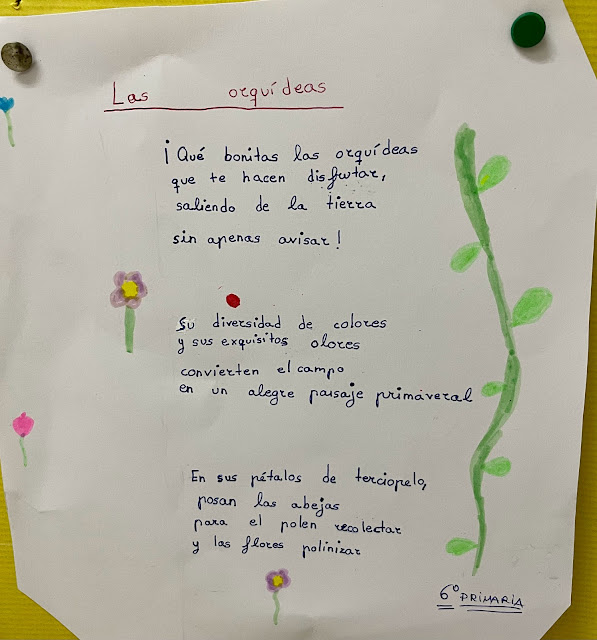 Las orquídeas
¡Qué bonitas las orquídeas
que te hacen disfrutar,
saliendo de la tierra
sin apenas avisar!
Su diversidad de colores
y sus exquisitos olores
convierten el campo
en un alegre paisaje primaveral
En sus pétalos de terciopelo,
posan las abejas
para el polen recolectar
y las flores polinizar
6º PRIMARIA